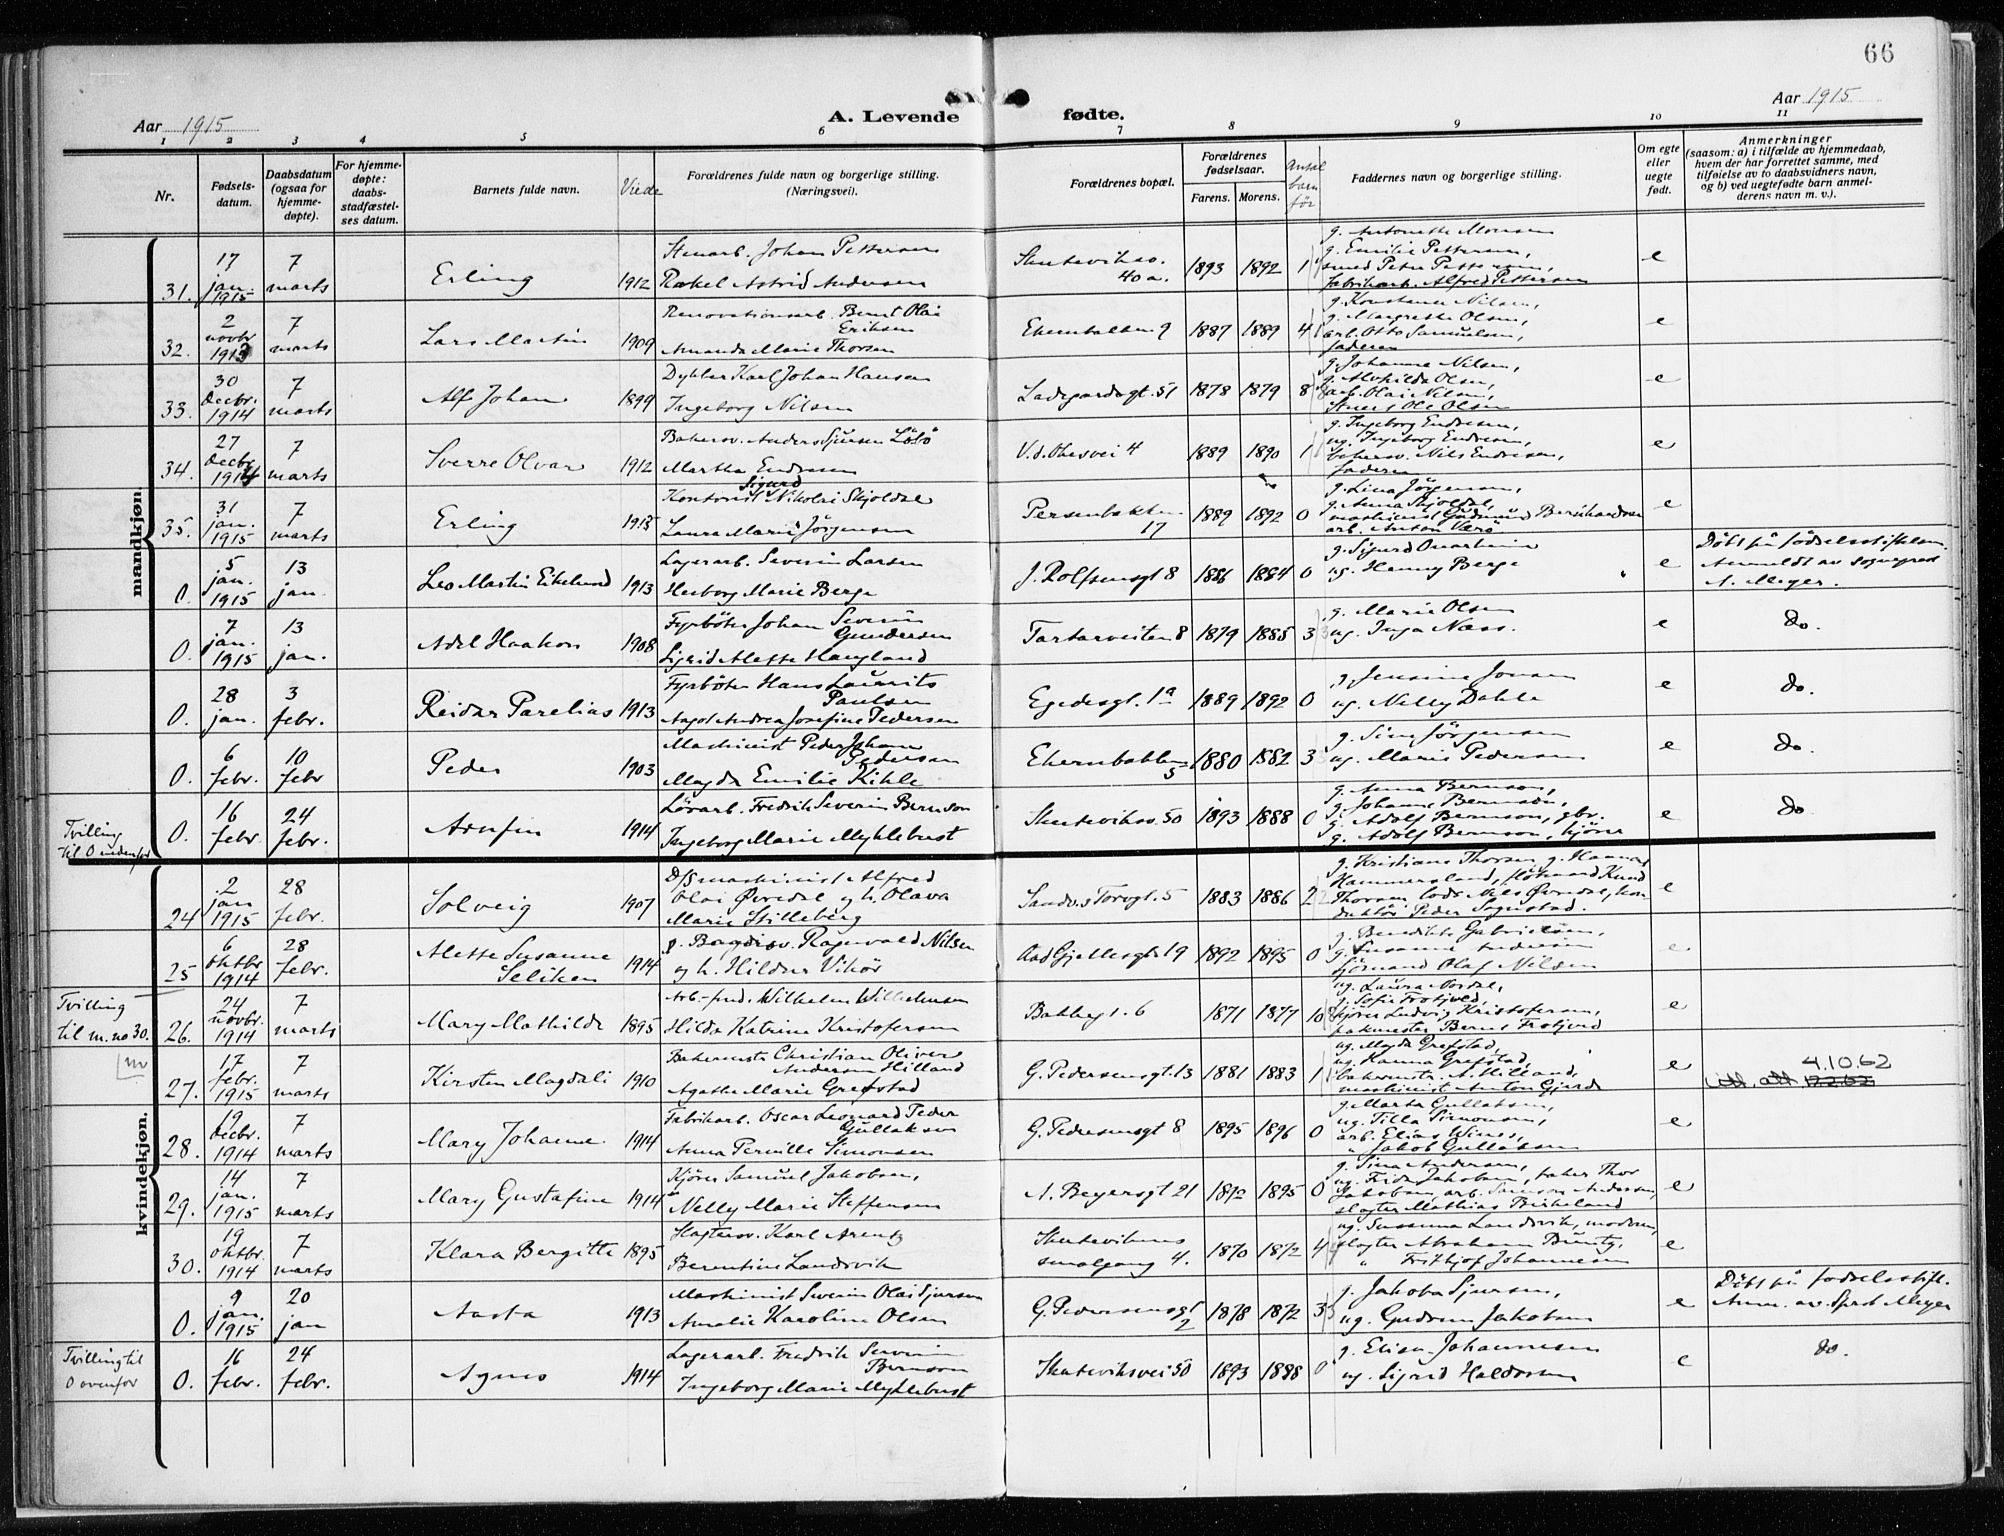 66
Aar 1915
A. Levende
fødte.
Aar 1915
1 2 3 4 5 6 7 8 9 10 11
Nr.
Fødsels-
datum.
Daabsdatum
(ogsaa for
hjemme-
døpte).
For hjemme-
døpte:
daabs-
stadfæstel-
ses datum.
Barnets fulde navn.
Viede
Forældrenes fulde navn og borgerlige stilling.
(Næringsvei).
Forældrenes bopæl.
Forældrenes
fødselsaar.
Farens. Morens.
Antal
barn
før
Faddernes navn og borgerlige stilling.
Om egte
eller
uegte
født.
Anmerkninger
(saasom: a) i tilfælde av hjemmedaab,
hvem der har forrettet samme, med
tilføielse av to daabsvidners navn,
og b) ved uegtefødte barn anmel-
derens navn m. v.).
mandkjøn.
31.
17
jan.
1915
7
marts
Erling
1912
Stenarb. Johan Pettersen
Rakel Astrid Andersen
Skuteviksv.
40a.
1893 1892 1
g. Antonette Monsen
g. Emilie Pettersen,
smed Peter Pettersen,
fabrikarb. Alfred Pettersen
e
32.
2
novbr
1913
7
marts
Lars Martin
1909
Renovationsarb. Bernt Olai
Eriksen
Amanda Marie Thorsen
9
1887 1889 4
g. Konstanse Nilsen,
g. Margrethe Olsen,
arb. Otto Samuelsen,
faderen
e
33.
30
decbr.
1914
7
marts
Alf Johan
1899
Dykker Karl Johan Hansen
Ingeborg Nilsen
Ladegaardsgt. 51
1878 1879 8
g. Johanna Nilsen,
g. Alvhilda Olsen,
arb. Olai Nilsen,
Ole Olsen
e
34.
27
decbr
1914
7
marts
Sverre Olvar
1912
Bakersv. Anders Sjursen
Martha Endresen
4
1889 1890 1
g. Ingeborg Endresen,
ug. Ingeborg Endresen,
bakersv. Nils Endresen,
faderen
e
35.
31
jan.
1915
7
marts
Erling
1915
Sigurd
Kontorist Nikolai Skjoldal
Laura Marie Jørgensen
Persenbakken
17
1889 1892 0
g. Lina Jørgensen,
g. Anna Skjoldal,
maskinist Gudmund Bernhardsen
arb. Anton Værø
e
0.
5
jan.
1915
13
jan.
Leo Martin Eikelund
1913
Lagerarb. Severin Larsen
Herborg Marie Berge
J. Rolfsensgt 8
1886 1884 0
g. Sigurd
ug. Henny Berge
e
Døbt på fødselsstiftelsen.
Anmeldt av sogneprest
A. Meyer.
0.
7
jan.
1915
13
jan.
Adel Haakon
1908
Fyrbøter Johan Severin
Gundersen
Sigrid Alette Haugland
8
1879 1885 3
g. Marie Olsen
ug. Inga Næss.
e
do.
0.
28
jan.
3
febr.
Reidar Parelius
1913
Fyrbøter Hans Laurits
Paulsen
Aagot Andrea Josefine Pedersen
Egedesgt. 1a
1889 1892 0
g. Jensine Jonsen
ug. Nelly Dahle
e
do.
0.
6
febr.
10
febr
Peder
1903
Maskinist Peder Johan
Pedersen
Magda Emilie Kihle
5
1880 1882 3
g. Sina Jørgensen
ug. Marie Pedersen
e
do.
Tvilling
til 0 nedenfor
0.
16
febr.
24
febr.
Arnfin
1914
Fredrik Severin Bernson
Ingeborg Marie Myklebust
Skuteviksv. 50
1893 1888 0
g. Anna Bernson,
g. Johanne Bernsson,
g. Adolf Bernson, gbr.
g. Adolf Bernson, kjører
e
do
kvindekjøn.
24
2
jan
1915
28
febr.
Solveig
1907
D/S maskinist Alfred
Olai Øvredal og h. Olava
Marie Stilleberg
Sandv. Torvgt. 5
1883 1886 2
g. Kristiane Thorsen, g. Hanna
Hammersland, Knud
Thorsen, lods Nils Øvredal, kon
duktør Peder Sognstad.
e
25
6
oktbr
1914
28
febr.
Alette Susanne
Seliken
1914
Ragnvald Nilsen
og h. Hildur Vikør
Aad Gjellesgt 19
1892 1895 0
g. Benedikte Gabrielsen,
g. Susanne Andersen
sjømand Olaf Nilsen
e
Tvilling
til m. no 30.
26.
24
novbr.
1914
7
marts
Mary Mathilde
1895
Arb.-fmd. Wilhelm Wilhelmsen
Hilda Katrine Kristofersen
Bakkegt. 6
1871 1877 10
ug. Laura Nordal,
g. Sofie Frotjold,
kjører Ludvig Kristofersen,
pakmester Bernt Frotjold
e
nv
27.
17
febr.
1915
7
marts
Kirsten Magdali
1910
Bakermstr. Christian Oliver
Andersen Hilland
Agathe Marie Grefstad
G. Pedersensgt. 13
1881 1883 1
ug. Magda Grefstad,
ug. Hanna Grefstad,
bakermstr. A. Hilland,
maskinist Anton Gjerde
e
4.10.62
utt. att 12.2.62
28.
19
decbr.
1914
7
marts
Mary Johanne
1914
Fabrikarb. Oscar Leonard Peder
Gullaksen
Anna Pernille Simonsen
G. Pedersensgt 8
1895 1896 0
g. Marta Gullaksen,
ug. Tilla Simonsen,
arb. Elias Wines,
" Jakob Gullaksen
e
29.
14
jan.
1915
7
marts
Mary Gustafine
1914
Kjører Samuel Jakobsen,
Nelly Marie Steffensen
A. Beyersgt 21
1892 1895 0
g. Sina Andersen,
ug. Frida Jakobsen, baker Thor
Jakobsen, arb. Samson Andersen,
slagter Mathias Birkeland
e
30.
19
oktbr.
1914
7
marts
Klara Bergitte
1895
Slagtersv. Karl Arentz
Berentine Landsvik
Skutevikens
smalgang 4.
1870 1872 4
ug. Susanna Landsvik, moderen,
slagter Abraham Buntz,
" Fritjof Johannesen
e
0.
9
jan.
1915
20
jan
Aasta
1913
Maskinist Severin Olai Sjursen
Amalie Karoline Olsen
G. Pedersensgt
2
1878 1872 3
g. Jakoba Sjursen,
ug. Gudrun Jakobsen
e
Døbt på fødselsstift.
Anm. av Sprst Meyer
Tvilling til
0 ovenfor
0.
16
febr.
24
febr.
Agnes
1914
Lagerarb. Fredrik Severin
Bernson
Ingeborg Marie Myklebust
Skuteviksvei 50
1893 1888 0
g. Elisa Johannesen
ug. Sigrid Haldorsen
e
do.